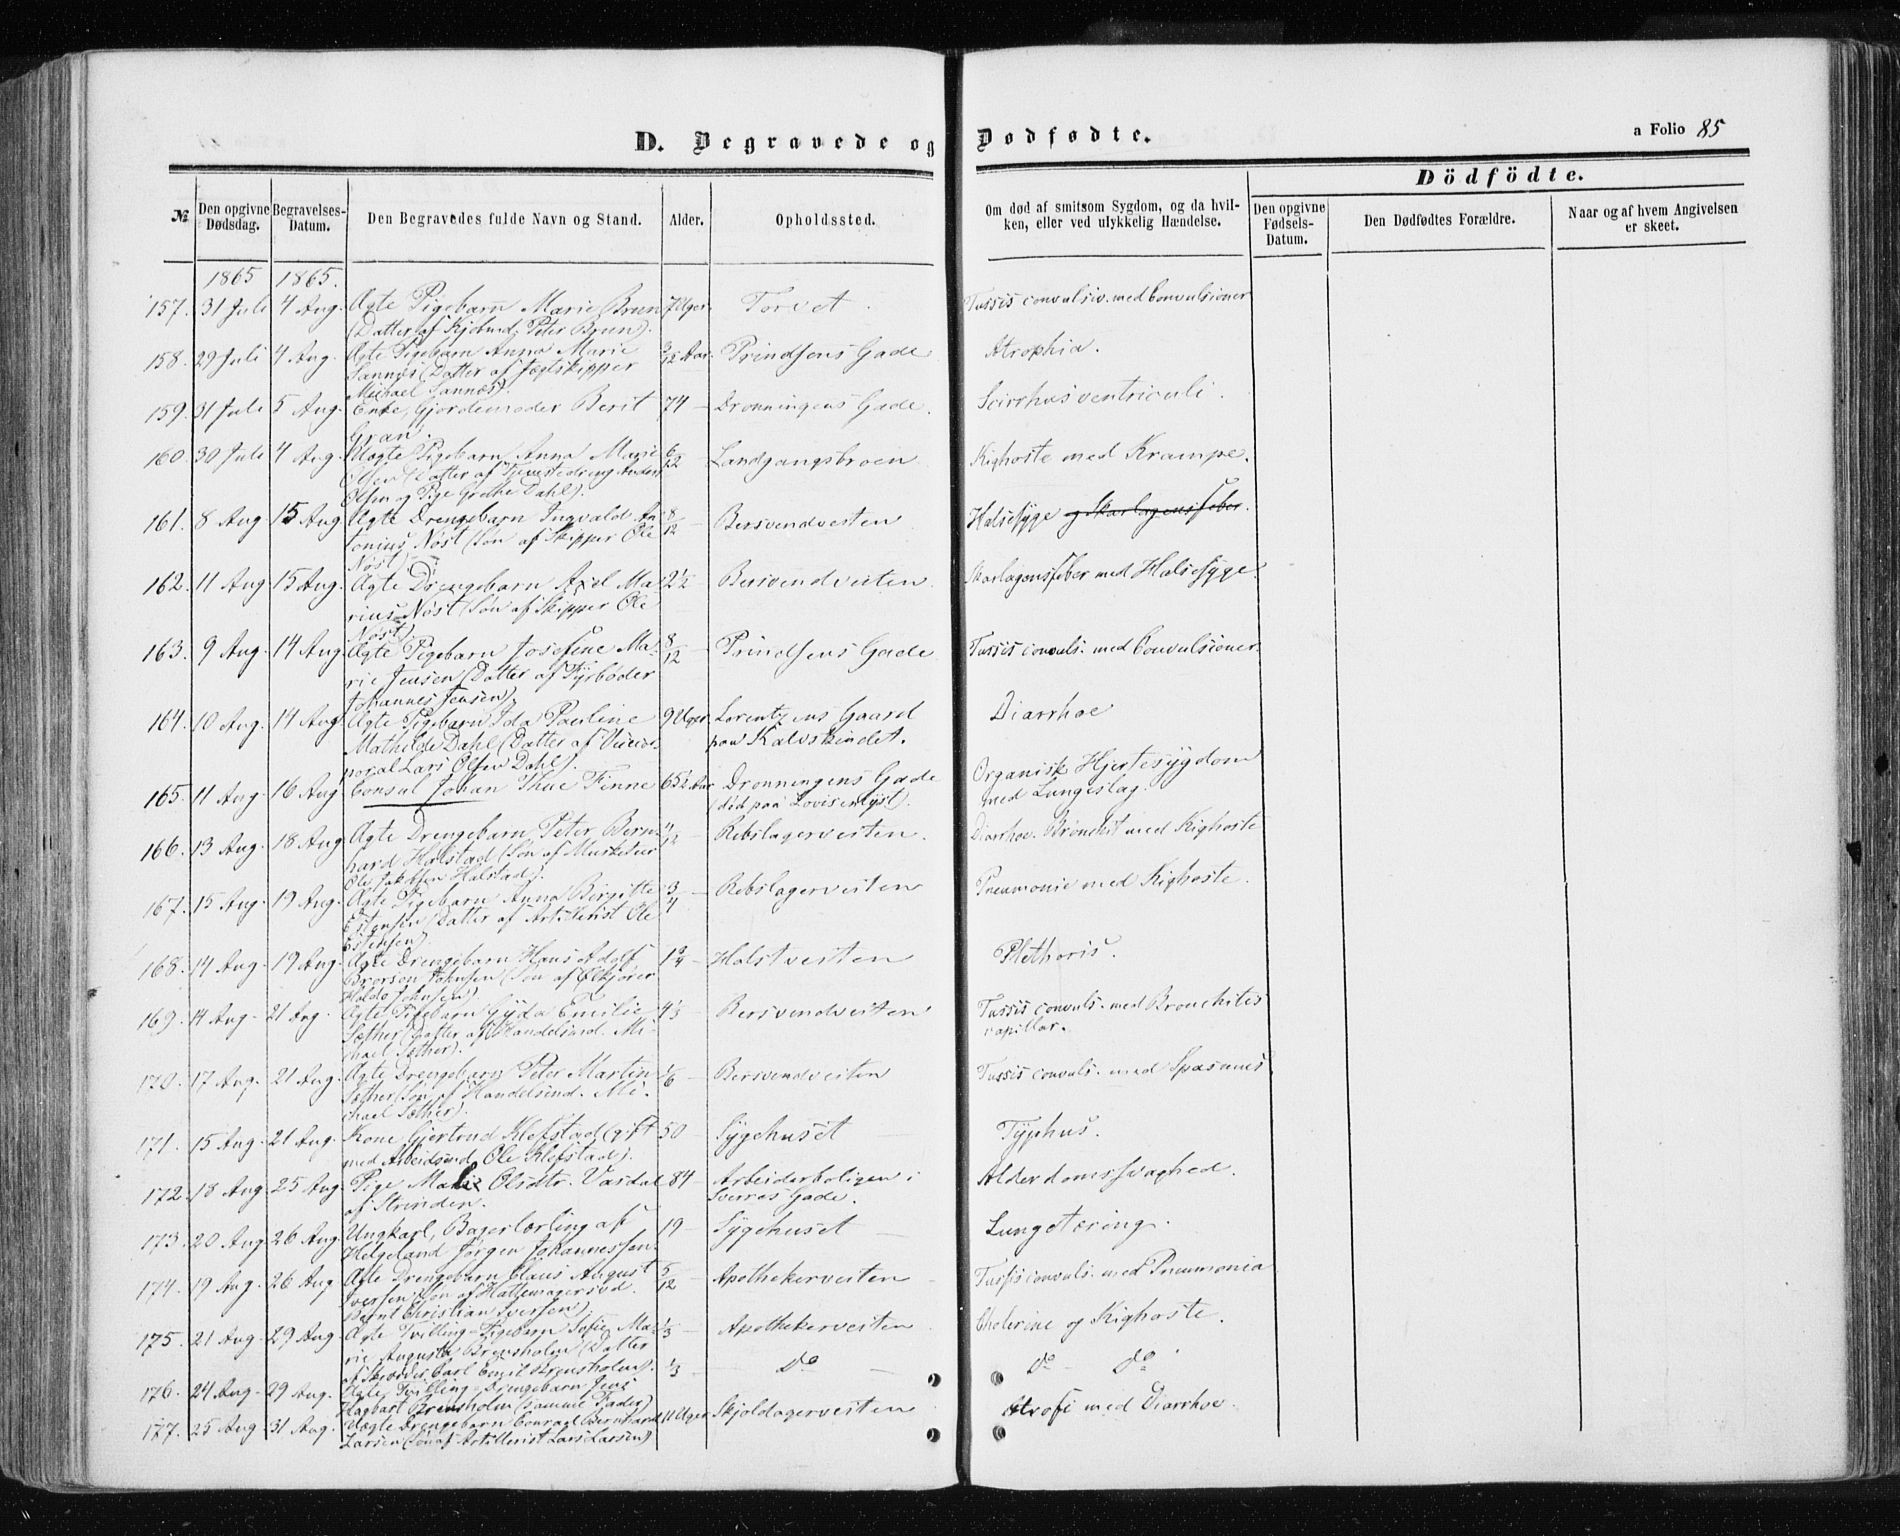 D. Begravede og Dødfødte.
a Folio 85
Dödfödte.
№ Den opgivne Dødsdag. Begravelses-Datum. Den Begravedes fulde Navn og Stand. Alder. Opholdssted. Om død af smitsom Sygdom, og da hvilken, eller ved ulykkelig Hændelse. Den opgivne Fødsels-Datum. Den Dødfødtes Forældre. Naar og af hvem Angivelsen er skeet.
1865 1865.
157. 31 Juli 4 Aug. Ægte Pigebarn Marie Brun 7 Uger Torvet. Tussis convulsiv. med Convulsioner
(Datter af Kjøbmd. Peter Brun).
158. 29 Juli 4 Aug. Ægte Pigebarn Anna Marie Aar. Prindsens Gade Atrophia.
Sannæs (Datter af Jægtskipper
Michael Sannæs).
159. 31 Juli 5 Aug. Enke, Gjordemoder Berit 74 — Dronningens Gade. Scirrhus ventriculi.
Gran.
160. 30 Juli 4 Aug. Uægte Pigebarn Anna Marie 6/12 Landgangsbroen Kighoste med Krampe.
Olsen (Datter af Tjenestedreng Anders
Olsen og Pige Grethe Dahl).
161. 8 Aug 15 Aug Ægte Drengebarn Ingvald An 8/12 — Bersvendveiten Halsesyge og Skarlagensfeber.
tonius Nøst (Søn af Skipper Ole
Nøst).
162. 11 Aug 15 Aug. Ægte Drengebarn Axel Ma 2½ — Bersvendveiten. Skarlagensfeber med Halsesyge.
rius Nøst (Søn af Skipper Ole
Nøst)
163. 9 Aug. 14 Aug Ægte Pigebarn Josefine Ma- 8/12 — Prindsens Gade Tussis convuls. med Convulsioner.
rie Jensen (Datter af Fyrbøder
Johannes Jensen).
164. 10 Aug. 14 Aug. Ægte Pigebarn Ida Pauline 9 Uger Lorentzens Gaard Diarrhoe
Mathilde Dahl (Datter af Vicecor- paa Kalvskindet.
poral Lars Olsen Dahl).
165. 11 Aug 16 Aug Consul Johan Thue Finne 65½ Aar Dronningens Gade Organisk Hjertesygdom
(død paa Lovisenlyst). med Lungeslag.
166. 13 Aug. 18 Aug Ægte Drengebarn Peter Bern- 11/12 — Rebslagerveiten. Diarrhoe. Bronchit med Kighoste
hard Halstad (Søn af Musketeer
Ole Jakobsen Halstad).
167. 15 Aug. 19 Aug. Ægte Pigebarn Anna Birgitte 3/4 — Rebslagerveiten Pneumonie med Kighoste.
Estensen (Datter af Artillerist Ole
Estensen).
168. 14 Aug. 19 Aug. Ægte Drengebarn Hans Adolf 1¾ — Holstveiten Plethoris.
Brorson Johnsen (Søn af Ølkjører
Holdo Johnsen).
169. 14 Aug. 21 Aug. Ægte Pigebarn Gyda Emilie 4⅓ — Bersvendveiten Tussis convuls. med Bronchites
Sæther (Datter af Handelsmd. Mi- capillar.
chael Sæther).
170. 17 Aug. 21 Aug. Ægte Drengebarn Peter Martin 1/6 — Bersvendveiten Tussis convuls. med Spasmus
Sæther (Søn af Handelsmd. Mi-
chael Sæther).
171. 15 Aug. 21 Aug. Kone Gjertrud Klefstad (gift 50 — Sygehuset — Typhus.
med Arbeidsmd. Ole Klefstad).
172. 18 Aug 25 Aug. Pige Olsdtr. Vasdal 84 — Arbeiderboligen i Alderdomssvaghed.
af Strinden. Sverres Gade.
173. 20 Aug 26 Aug. Ungkarl, Bagerlærling af 19 — Sygehuset — Lungetæring.
Helgeland Jørgen Johannessen.
174. 19 Aug. 26 Aug Ægte Drengebarn Claus August 5/12 — Apothekerveiten — Tussis convuls. med Pneumonia
Iversen (Søn af Hattemagersvd.
Bernt Christian Iversen).
175. 21 Aug 29 Aug Ægte Tvilling-Pigebarn Sofie Ma- ⅓ — Apothekerveiten Cholerine og Kighoste.
rie Augusta Brensholm (Datter
af Skrædder Carl Emil Brensholm).
176. 24 Aug. 29 Aug. Ægte Tvilling-Drengebarn Jens ⅓ — do — do — do
Hagbart Brensholm (samme Fader)
177. 25 Aug. 31 Aug. Uægte Drengebarn Conrad Bernhard 11 Uger Skjoldagerveiten Atrofi med Diarrhoe.
Larsen (Søn af Artillerist Lars Larsen)